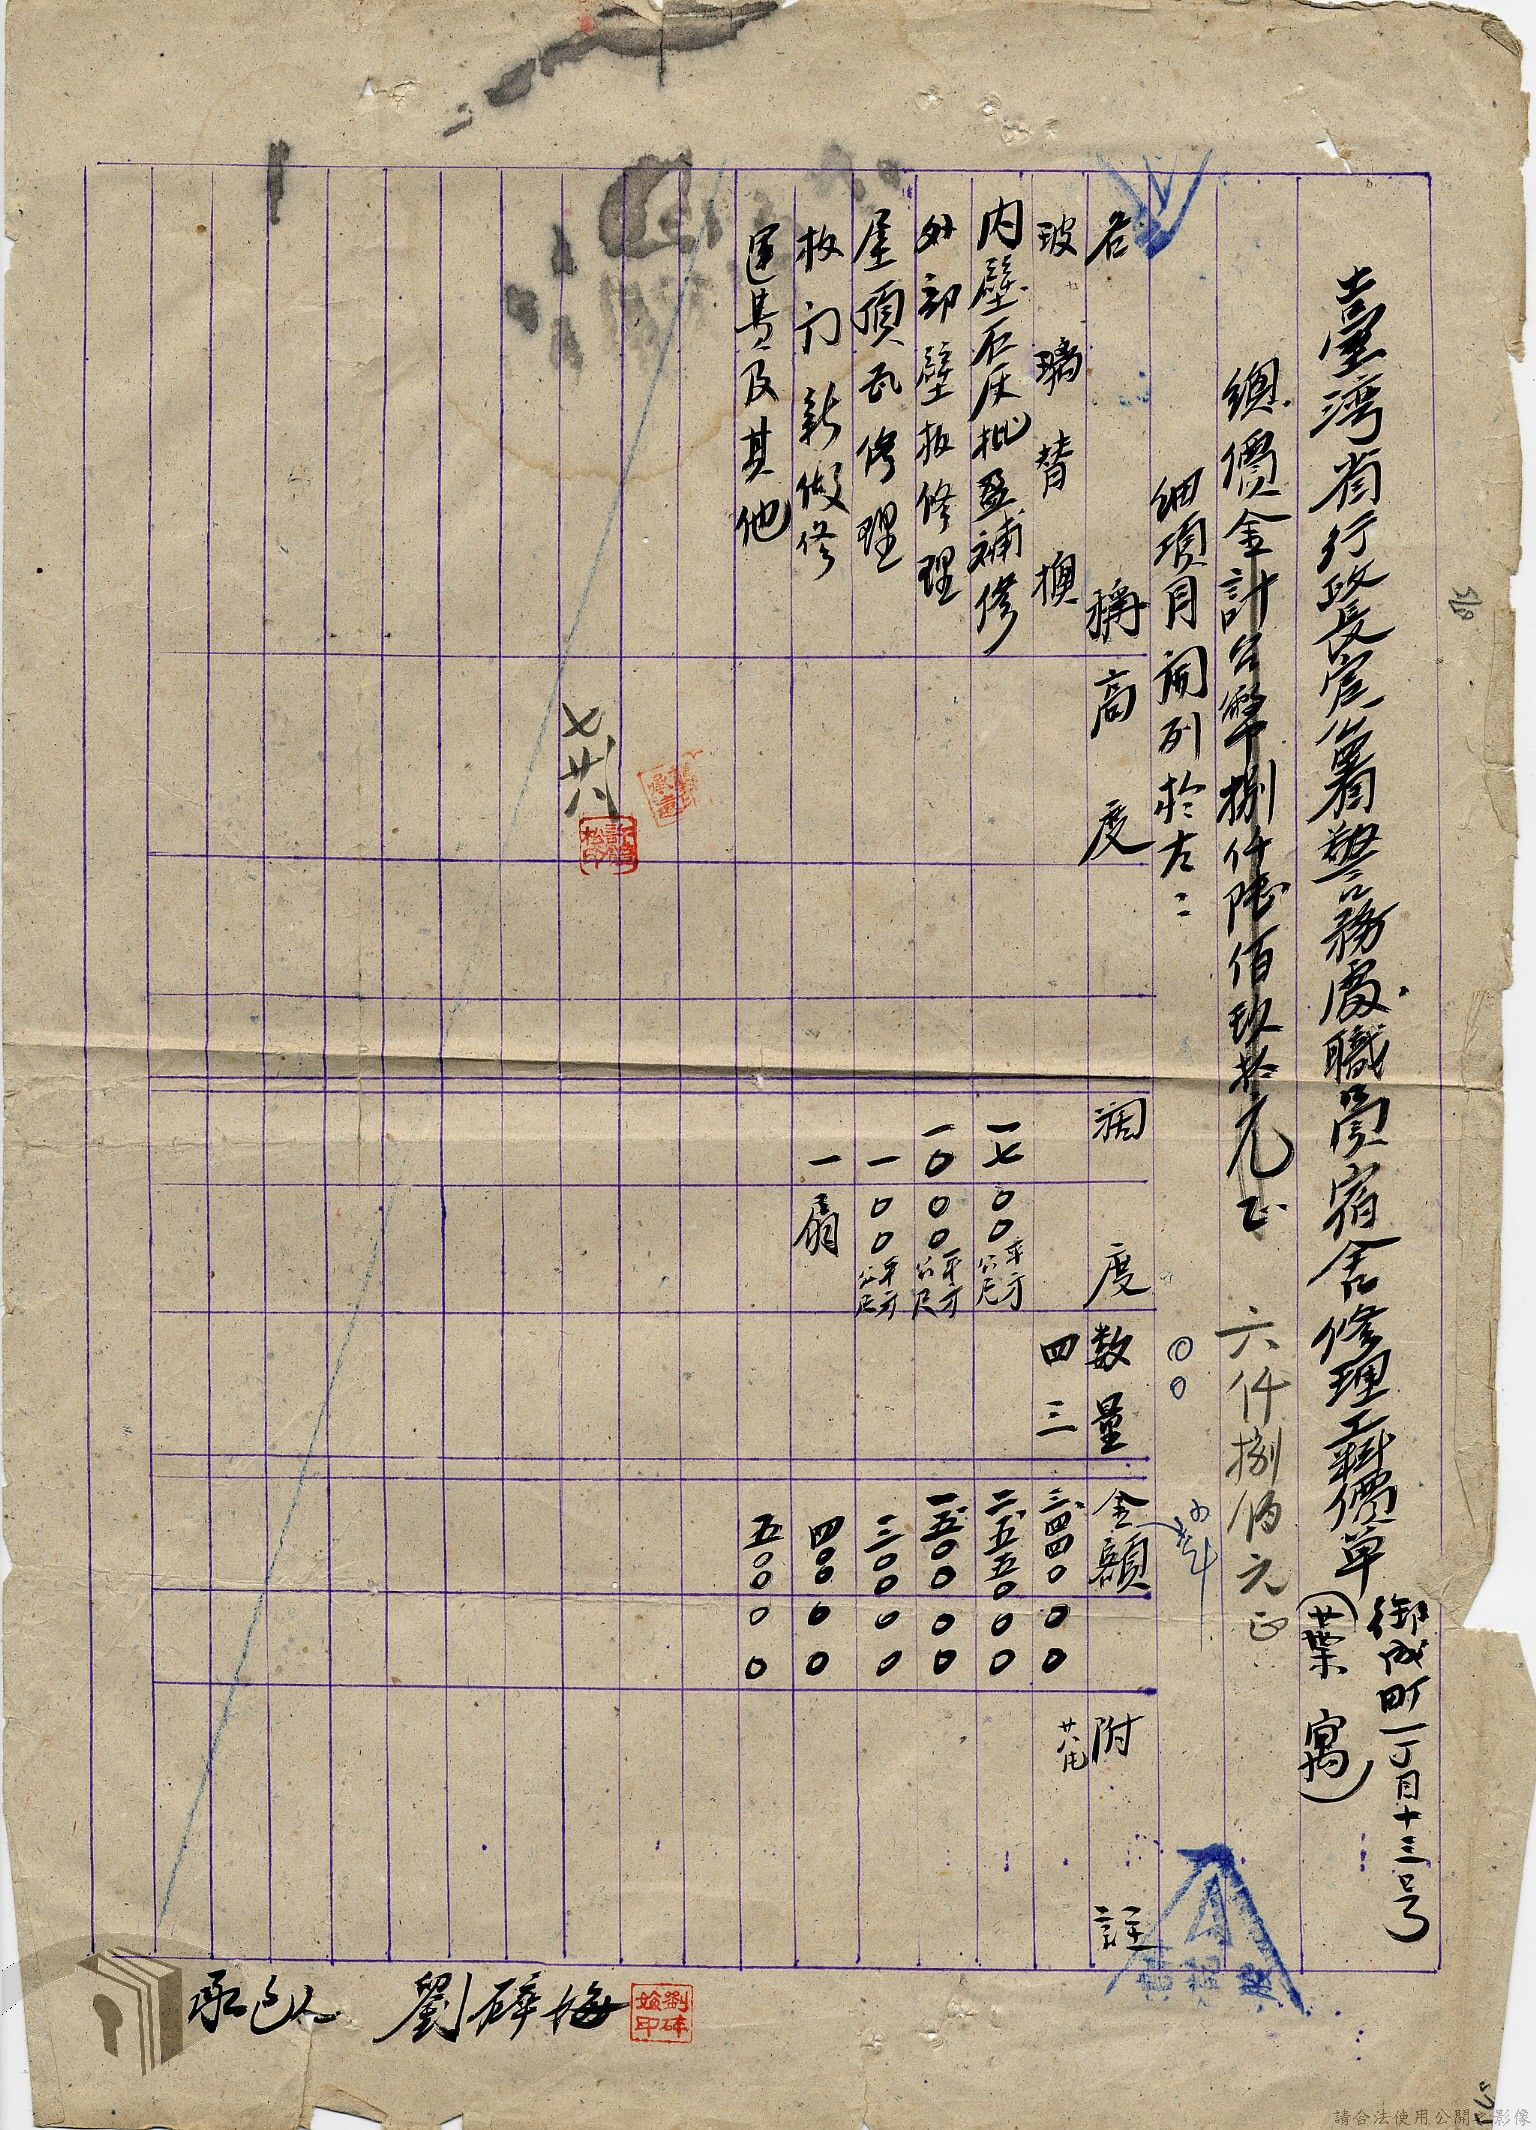 臺灣省行政長官公署警務處職員宿舍修理工料價單
御成町一丁目十三号
(葉寓)
總價金計台幣捌仟陸佰玖拾元正
六仟捌佰元正
細項目開列於左:
名稱 高度 濶度 数量 金額 附註
玻璃替換 四三 三.四四〇〇〇
内壁石灰批盪補修 一七〇〇平方公尺 二.五五〇〇〇
外部壁板修理 一〇〇〇平方公尺 一.五〇〇〇〇
屋頂瓦修理 一〇〇平方公尺 三〇〇〇〇
板门新做修 一扇 四〇〇〇〇
運費及其他 五〇〇〇〇
七 廿八
承包人 劉碎梅
請合法使用公開之影像